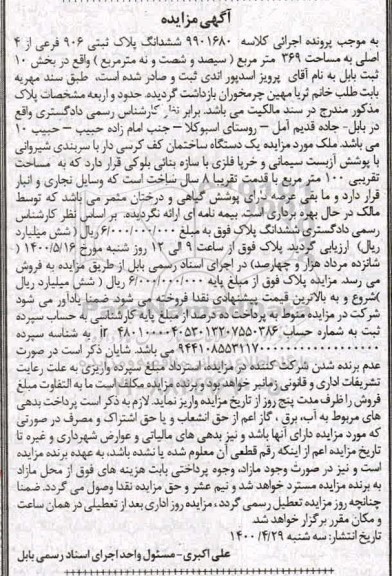 آگهی مزایده
به موجب پرونده اجرائی کلاسه ۹۹۰۱۶۸۰ ششدانگ پلاک ثبتی ۹۰۶ فرعی از ۴
اصلی به مساحت ۳۶۹ متر مربع ( سیصد و شصت و نه مترمربع ) واقع در بخش ۱۰
ثبت بابل به نام آقای پرویز اسدپور اندی ثبت و صادر شده است، طبق سند مهریه
بابت طلب خانم ثریا مهین چرمخوران بازداشت گردیده. حدود و اربعه مشخصات پلاک
مذکور مندرج در سند مالکیت می باشد. برابر نظر کارشناس رسمی دادگستری واقع
در بابل- جاده قدیم آمل – روستای اسبوکلا – جنب امام زاده حبیب – حبیب ۱۰
می باشد. ملک مورد مزایده یک دستگاه ساختمان کف کرسی دار با سربندی شیروانی
با پوشش آزبست سیمانی و خرپا فلزی با سازه بنائی بلوکی قرار دارد که به مساحت
تقریبی ۱۰۰ متر مربع با قدمت تقریبا ۸ سال ساخت است که وسایل نجاری و انبار
قرار دارد و ما بقی عرصه دارای پوشش گیاهی و درختان مثمر می باشد که توسط
مالک در حال بهره برداری است. بیمه نامه ای ارائه نگردیده. بر اساس نظر کارشناس
رسمی دادگستری ششدانگ پلاک فوق به مبلغ ۶/۰۰۰/۰۰۰/۰۰۰ ریال ( شش میلیارد
ریال) ارزیابی گردید. پلاک فوق از ساعت ۹ الی ۱۲ روز شنبه مورخ ۱۴۰۰/۵/۱۶ (
شانزده مرداد هزار و چهارصد) در اجرای اسناد رسمی بابل از طریق مزایده به فروش
می رسد. مزایده پلاک فوق از مبلغ پایه ۶/۰۰۰/۰۰۰/۰۰۰ ریال ( شش میلیارد ریال
)شروع و به بالاترین قیمت پیشنهادی نقدا فروخته می شود. ضمنا یادآور می شود
شرکت در مزایده منوط به پرداخت ده درصد از مبلغ پایه کارشناسی به حساب سپرده
ثبت به شماره حساب ir ۴۸۰۱۰۰۰۰۴۰۵۳۰۱۳۲۰۷۵۵۰۳۸۶ به شناسه سپرده
می باشد. شایان ذکر است در صورت
عدم برنده شدن شرکت کننده در مزایده، استرداد مبلغ سپرده واریزی به علت رعایت
تشریفات اداری و قانونی زمانبر خواهد بود و برنده مزایده مکلف است ما به التفاوت مبلغ
فروش را ظرف مدت پنج روز از تاریخ مزایده واریز نماید. لازم به ذکر است پرداخت بدهی
های مربوط به آب، برق ، گاز اعم از حق انشعاب و یا حق اشتراک و مصرف در صورتی
که مورد مزایده دارای آنها باشد و نیز بدهی های مالیاتی و عوارض شهرداری و غیره تا
تاریخ مزایده اعم از اینکه رقم قطعی آن معلوم شده یا نشده باشد، به عهده برنده مزایده
است و نیز در صورت وجود مازاد، وجوه پرداختی بابت هزینه های فوق از محل مازاد
به برنده مزایده مسترد خواهد شد و نیم عشر و حق مزایده نقدا وصول می گردد. ضمنا
چنانچه روز مزایده تعطیل رسمی گردد ، مزایده روز اداری بعد از تعطیلی در همان ساعت
و مکان مقرر برگزار خواهد شد
تاریخ انتشار: سه شنبه ۱۴۰۰/۴/۲۹
علی اکبری- مسئول واحد اجرای اسناد رسمی بابل